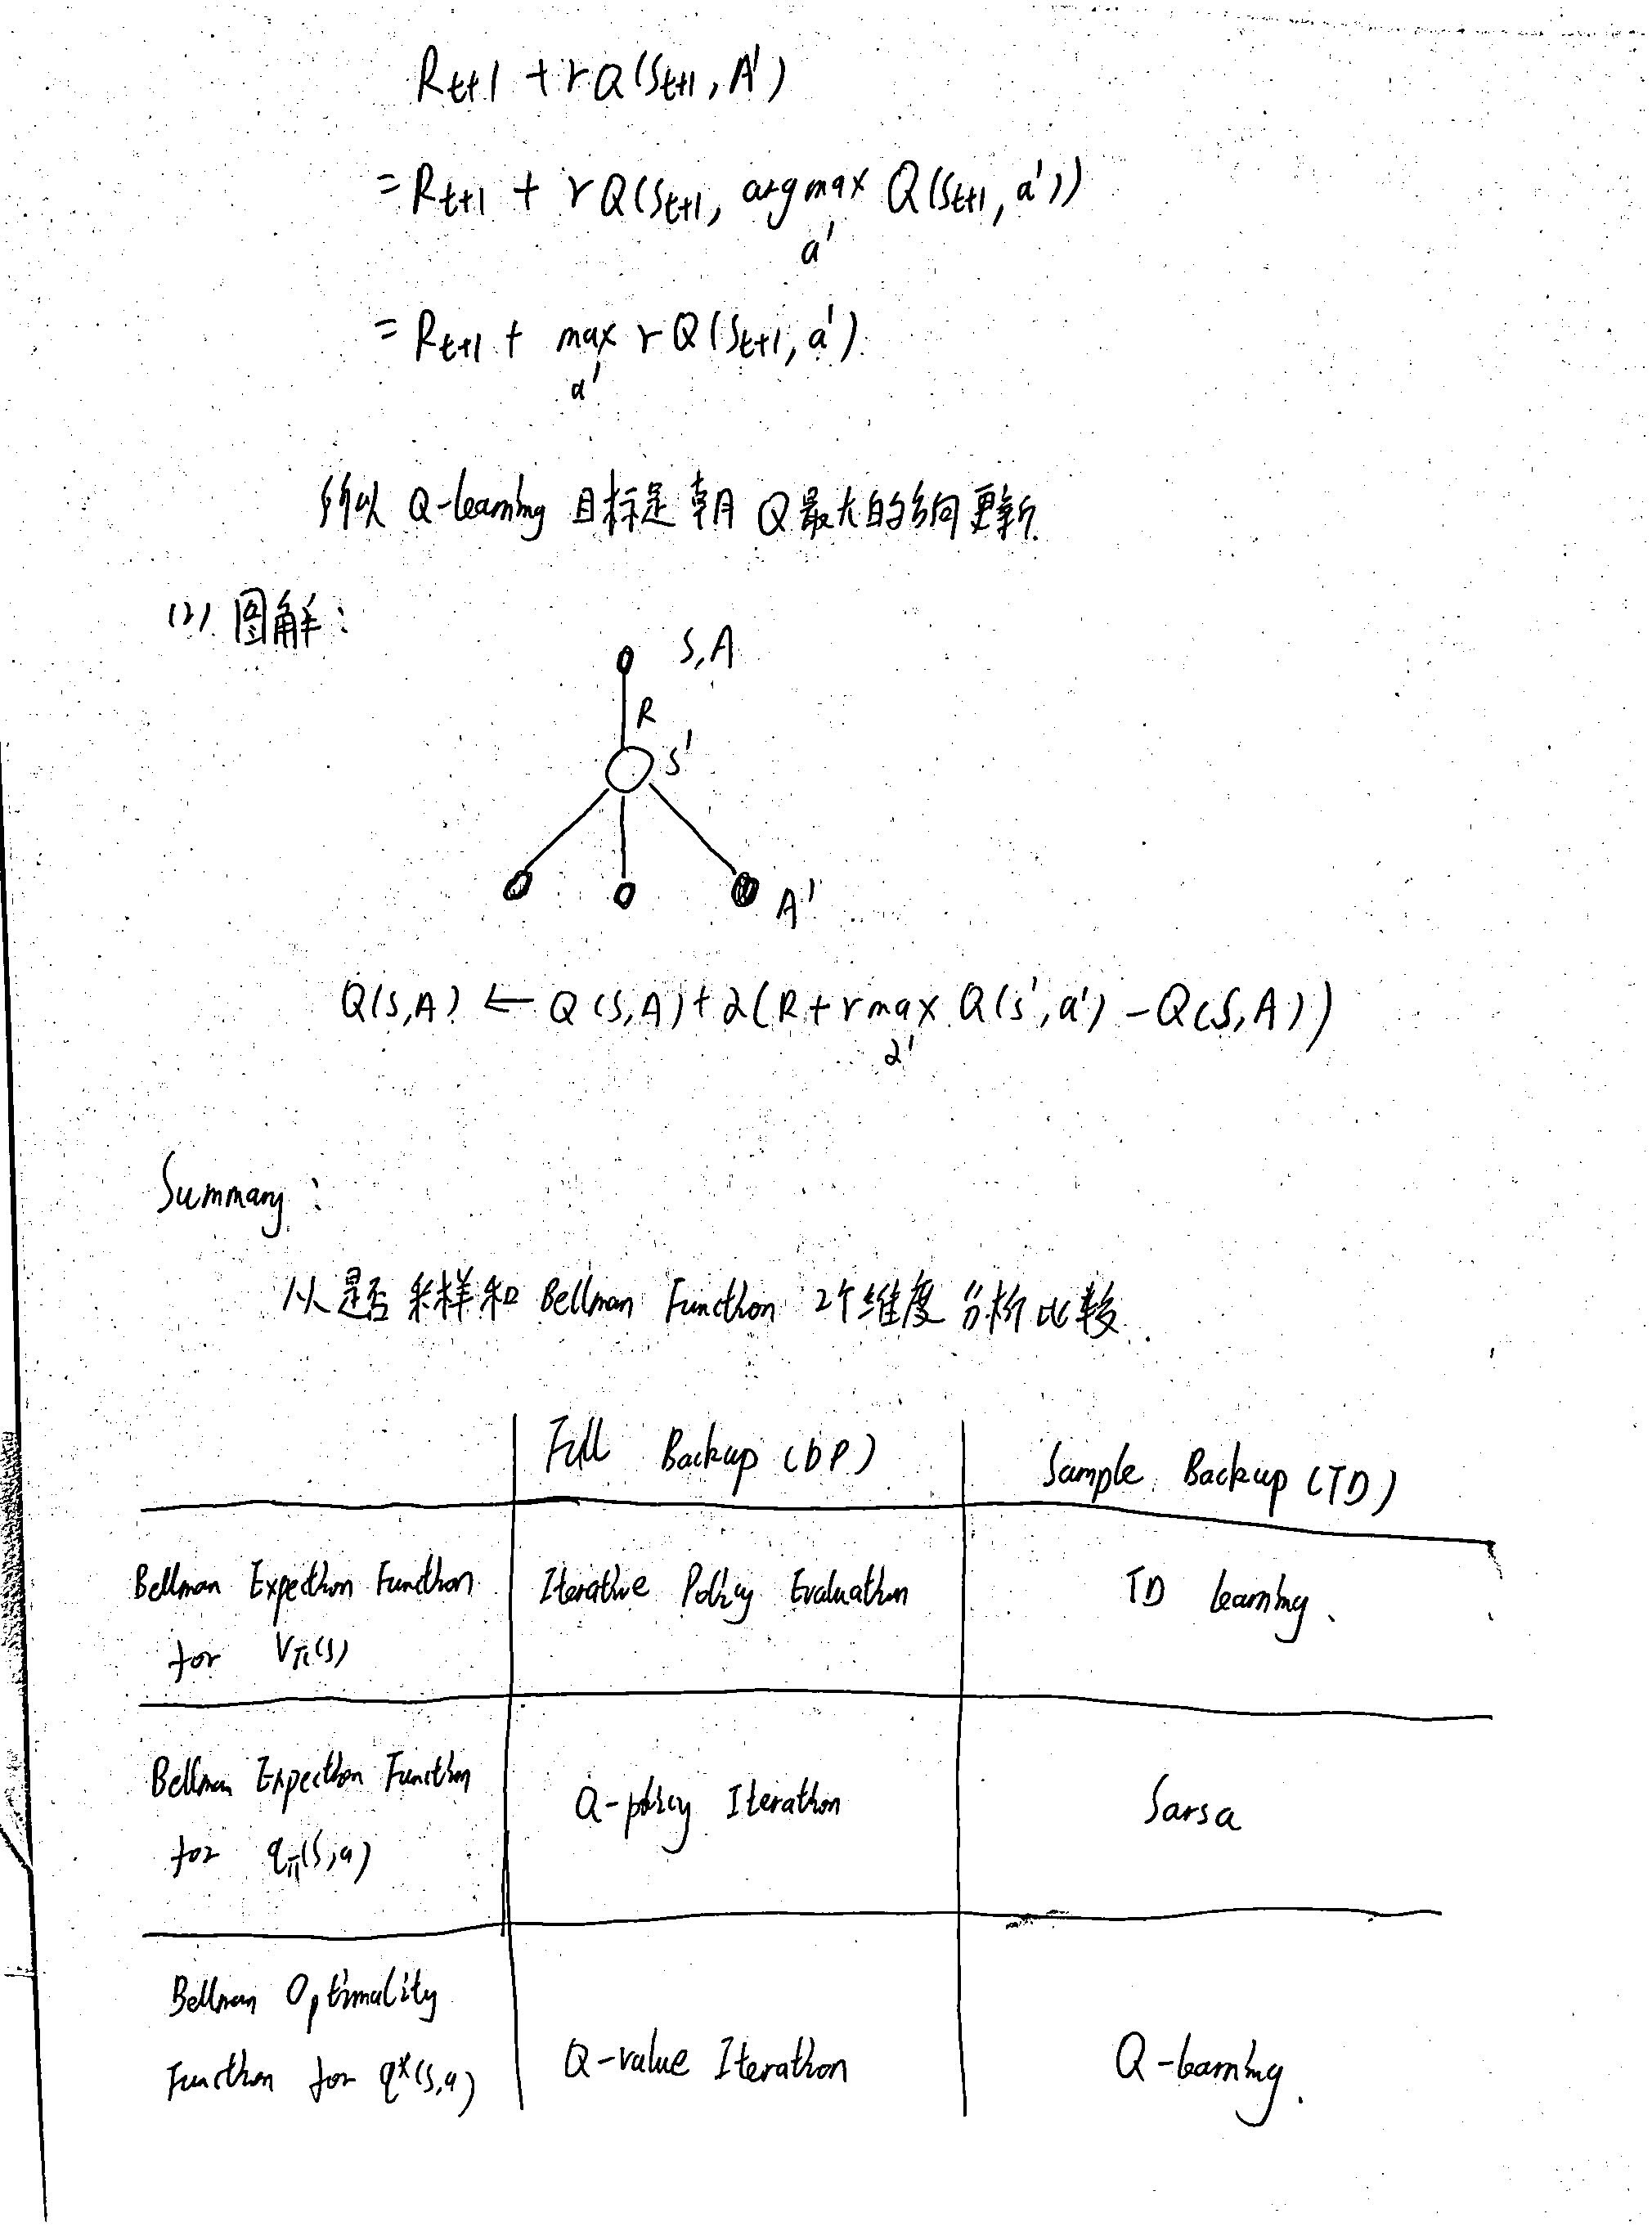 R_{t+1} + γQ(S_{t+1}, A')
= R_{t+1} + γQ(S_{t+1}, argmax Q(S_{t+1}, a'))
a'
= R_{t+1} + max γQ(S_{t+1}, a')
a'
所以 Q-learning 目标是 朝 Q最大的方向更新.
(2) 图解:
S,A
R
S'
A'
Q(S,A) ← Q(S,A) + α(R + γ max Q(s',a') - Q(S,A))
a'
Summary:
从是否采样和 Bellman Function 2个维度分析比较.
Full Backup (DP)
Sample Backup (TD)
Bellman Expection Function
for V_π(s)
Iterative Policy Evaluation
TD learning.
Bellman Expection Function
for q_π(s,a)
Q-policy Iteration
Sarsa
Bellman Optimality
Function for q*(s,a)
Q-value Iteration
Q-learning.